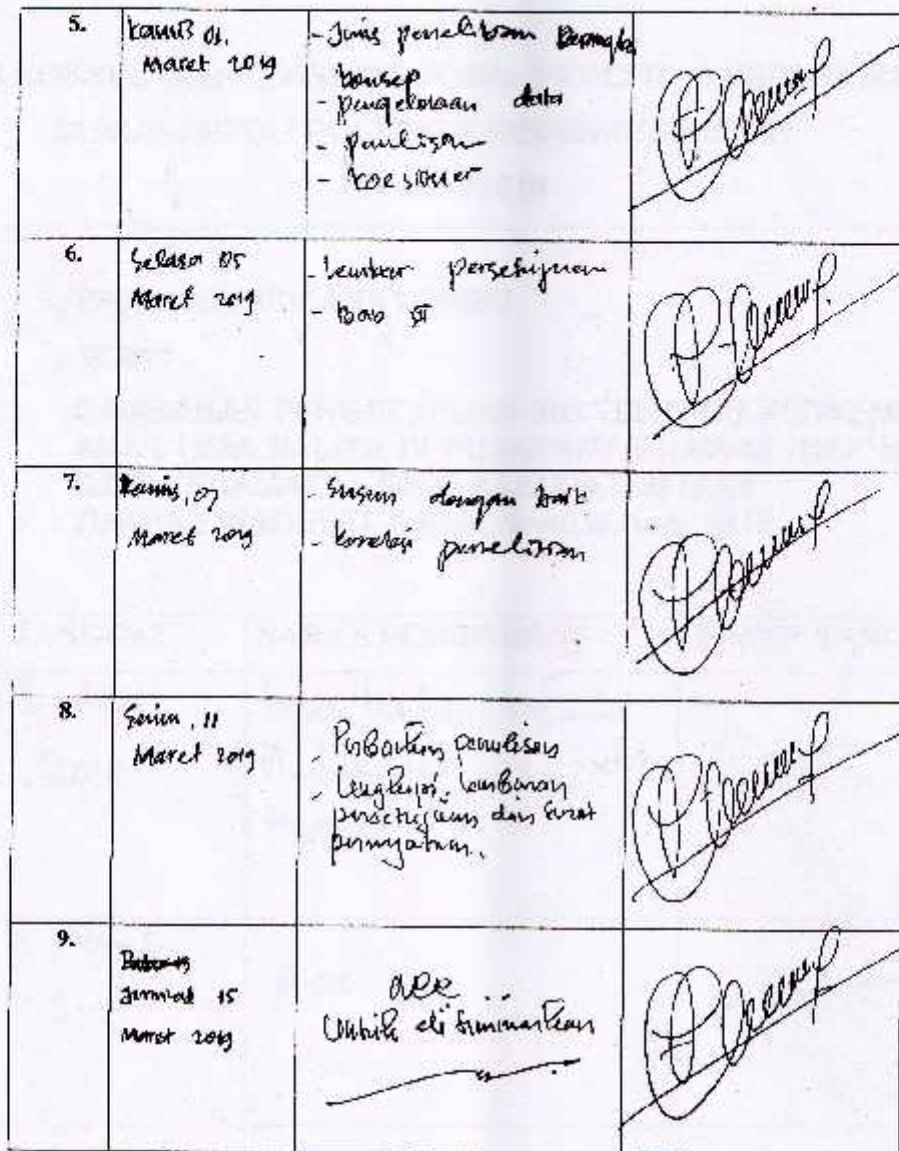 5.
Kamis 01.
Maret 2019
- Jenis penelitian Kerangka
konsep
- pengelolaan data
- penulisan
- koesioner
6.
Selasa 05
Maret 2019
- Lembar persetujuan
- Bab
7.
Kamis, 07
Maret 2019
- Susun dengan baik
- koreksi penelitian
8.
Senin, 11
Maret 2019
- Perbaikan penulisan
- Lengkapi Lembaran
persetujuan dan Surat
pernyataan.
9.
Jum'at 15
Maret 2019
acc
Untuk di Seminarkan